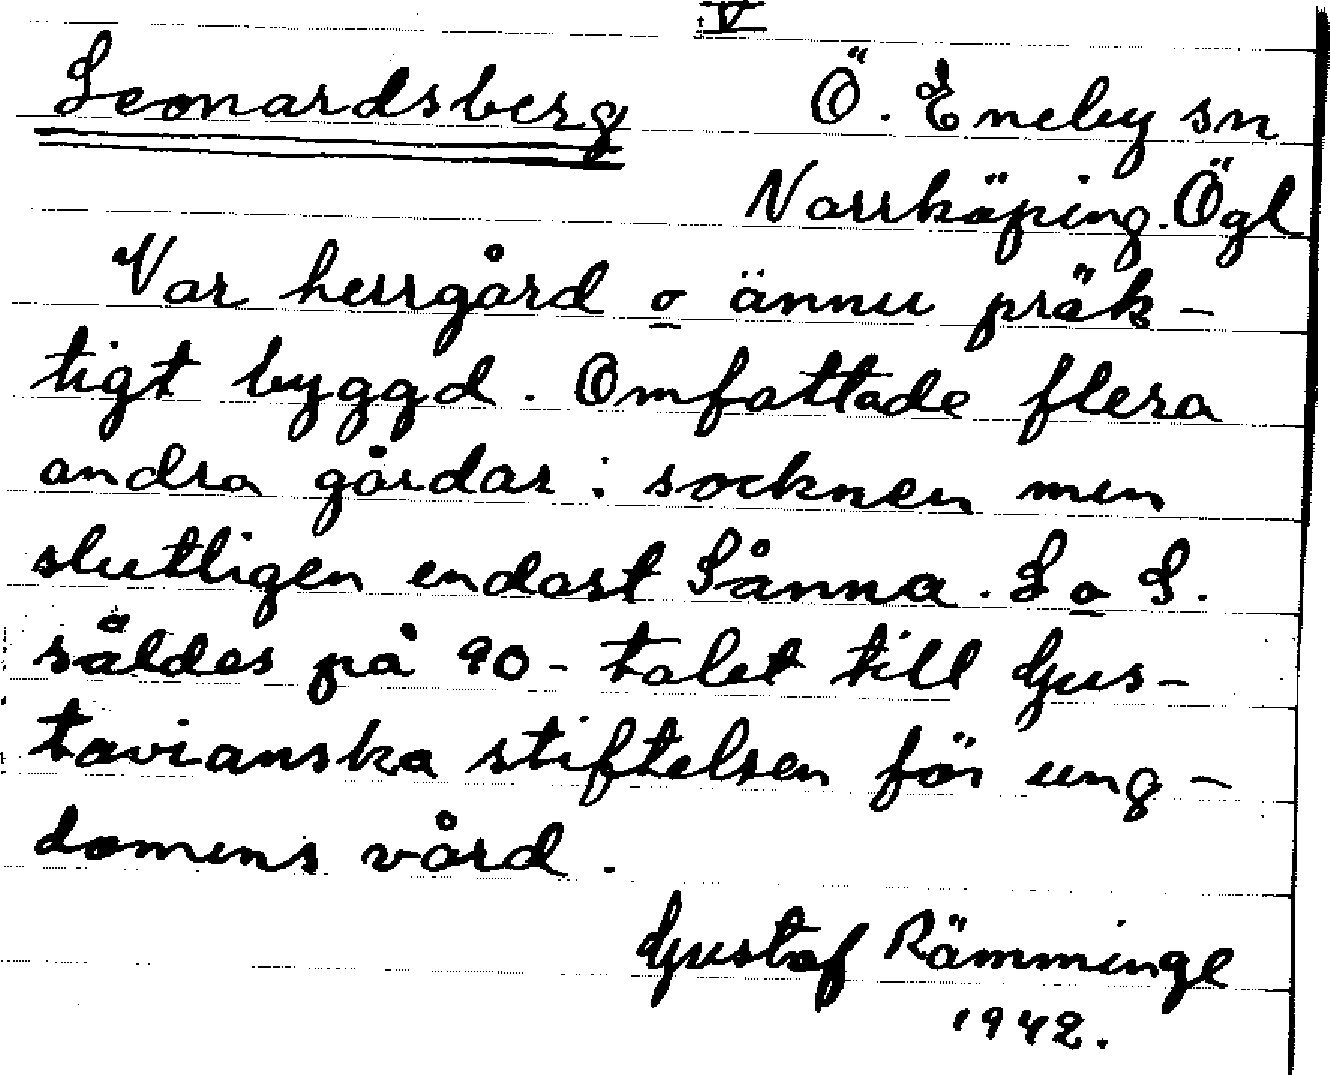 V
Leonardsberg Ö. Eneby sn
Norrköping. Ögl
Var herrgård o ännu präk-
tigt byggd. Omfattade flera
andra gårdar i socknen men
slutligen endast Sånna. L o S.
såldes på 90-talet till Gus-
tavianska stiftelsen för ung-
domens vård.
Gustaf Rämminge
1942.